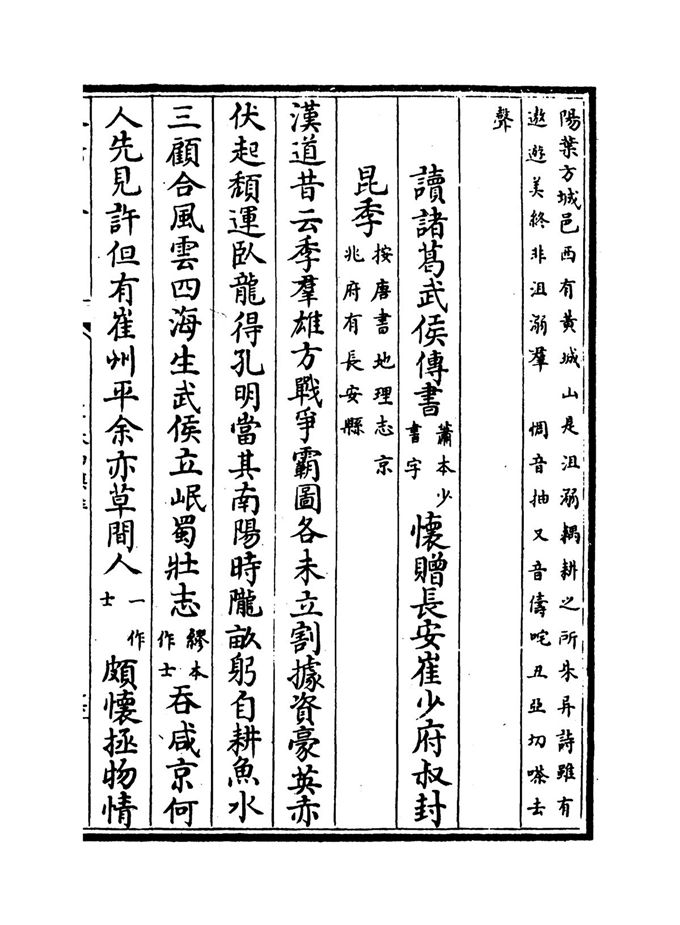 陽葉方城邑西有黃城山是沮溺耦耕之所朱异詩雖有
遨遊美終非沮溺羣　惆音抽又音儔咤丑亞切嗏去
聲
讀諸葛武侯傳書蕭本少書字懷贈長安崔少府叔封
昆季按唐書地理志京兆府有長安縣
漢道昔云季羣雄方戰爭霸圖各未立割據資豪英赤
伏起頹運臥龍得孔明當其南陽時隴畝躬自耕魚水
三顧合風雲四海生武侯立岷蜀壯志繆本作士吞咸京何
人先見許但有崔州平余亦草間人一作士頗懷拯物情